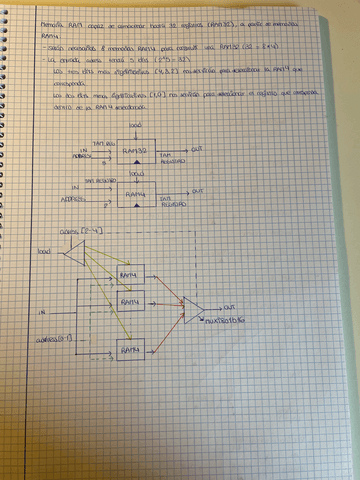 Memoria RAM capaz de almacenar hasta 32 registros (RAM32), a partir de memorias
RAM4.
- Serán necesarias 8 memorias RAM4 para construir una RAM32 (32 = 8x4)
- La entrada address tendrá 5 bits (2^5 = 32)
Los tres bits más significativos (4,3,2) nos servirán para seleccionar la RAM4 que
corresponda.
Los dos bits menos significativos (1,0) nos servirán para seleccionar el registro que corresponda
dentro de la RAM4 seleccionada.
load
TAM REG
IN
ADDRESS
5
RAM32
OUT
TAM
REGISTRO
load
TAM REGISTRO
IN
ADDRESS
2
RAM4
OUT
TAM
REGISTRO
address [2-4]
load
RAM4
RAM4
IN
OUT
address [0-1]
RAM4